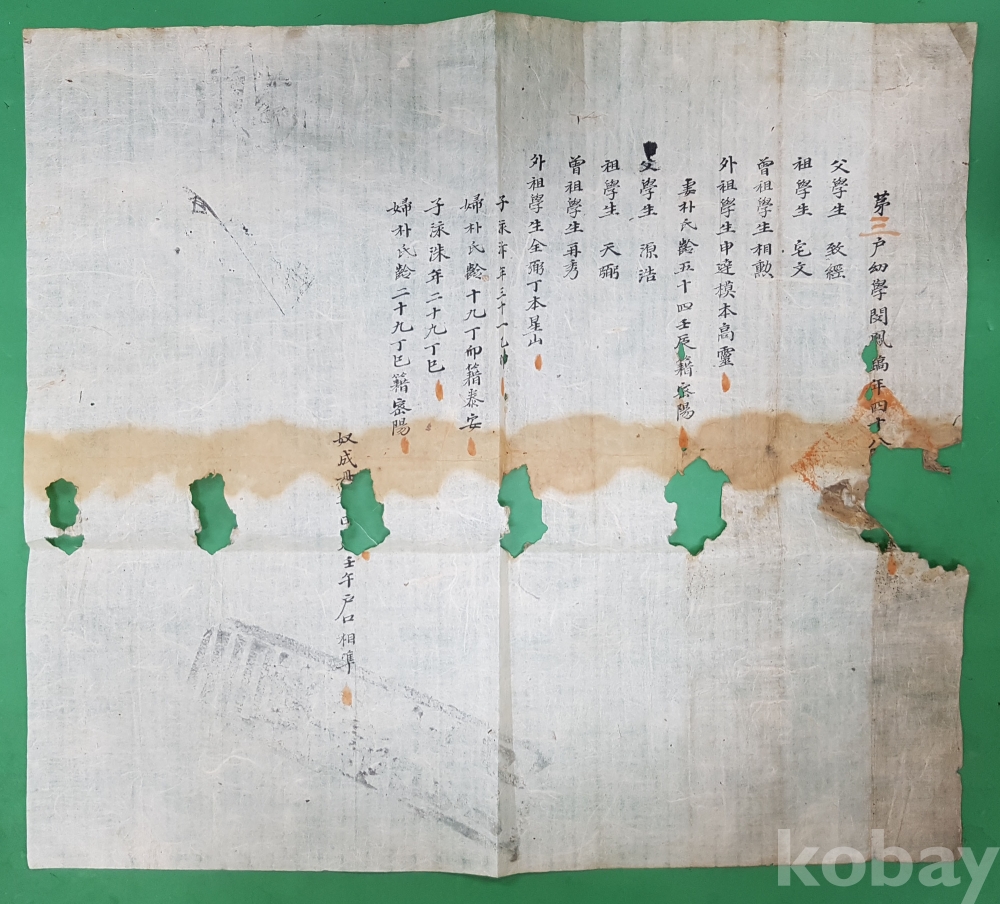 第三戶幼學閔鳳 年四十八
父學生 致經
祖學生 宅文
曾祖學生相勲
外祖學生申達模本高靈
妻朴氏齡五十四壬辰籍密陽
父學生 源浩
祖學生 天弼
曾祖學生再秀
外祖學生全弼丁本星山
子泳 年三十一乙
婦朴氏齡十九丁卯籍泰安
子泳洙年二十九丁巳
婦朴氏齡二十九丁巳籍密陽
奴成 壬午戶口相準
kobay